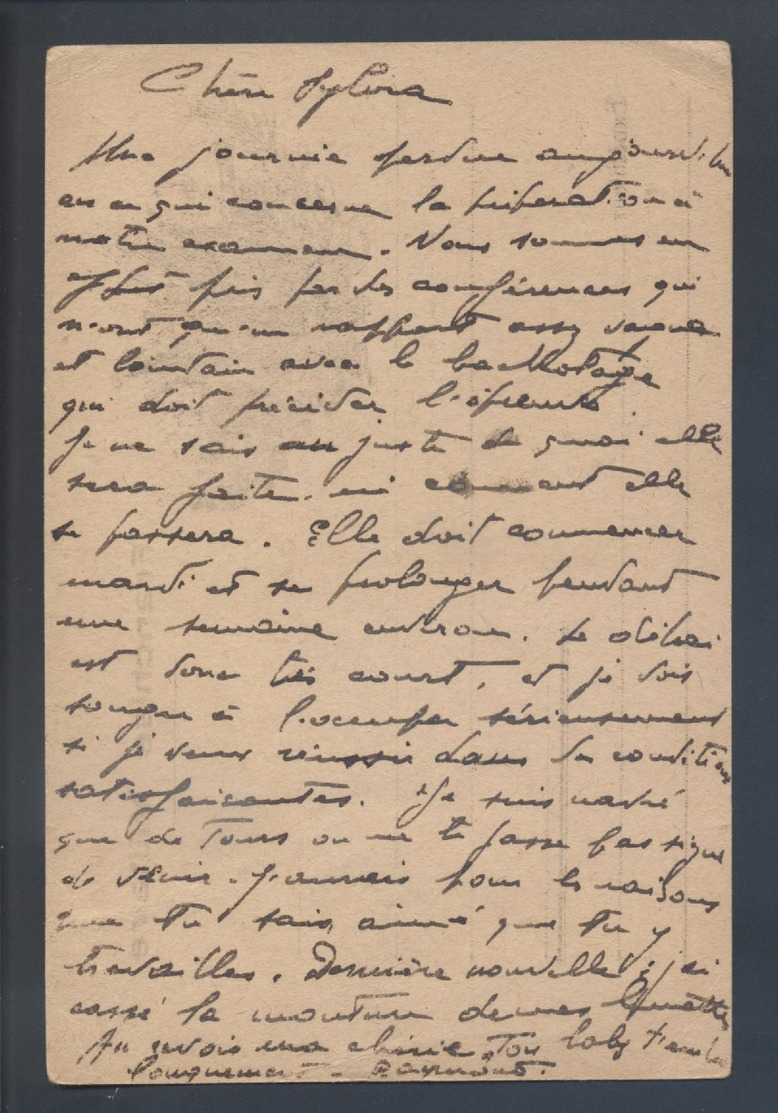 Chère Sylvia
Une journée perdue aujourd'hui
en ce qui concerne la préparation à
notre examen. Nous sommes en
effet pris par des conférences qui
n'ont qu'un rapport assez vague
et lointain avec le bachotage
qui doit précéder l'épreuve.
Je ne sais au juste de quoi elle
sera faite, ni comment elle
se passera. Elle doit commencer
mardi et se prolonger pendant
une semaine environ. Le délai
est donc très court, et je dois
songer à l'occuper sérieusement
si je veux réussir dans des conditions
satisfaisantes. Je suis navré
que de Tours on ne te fasse pas signe
de venir. J'aurais pour les raisons
que tu sais aimé que tu y
travailles. Dernière nouvelle : j'ai
cassé la monture de mes lunettes
Au revoir ma chérie. Ton
longuement - Raymond.